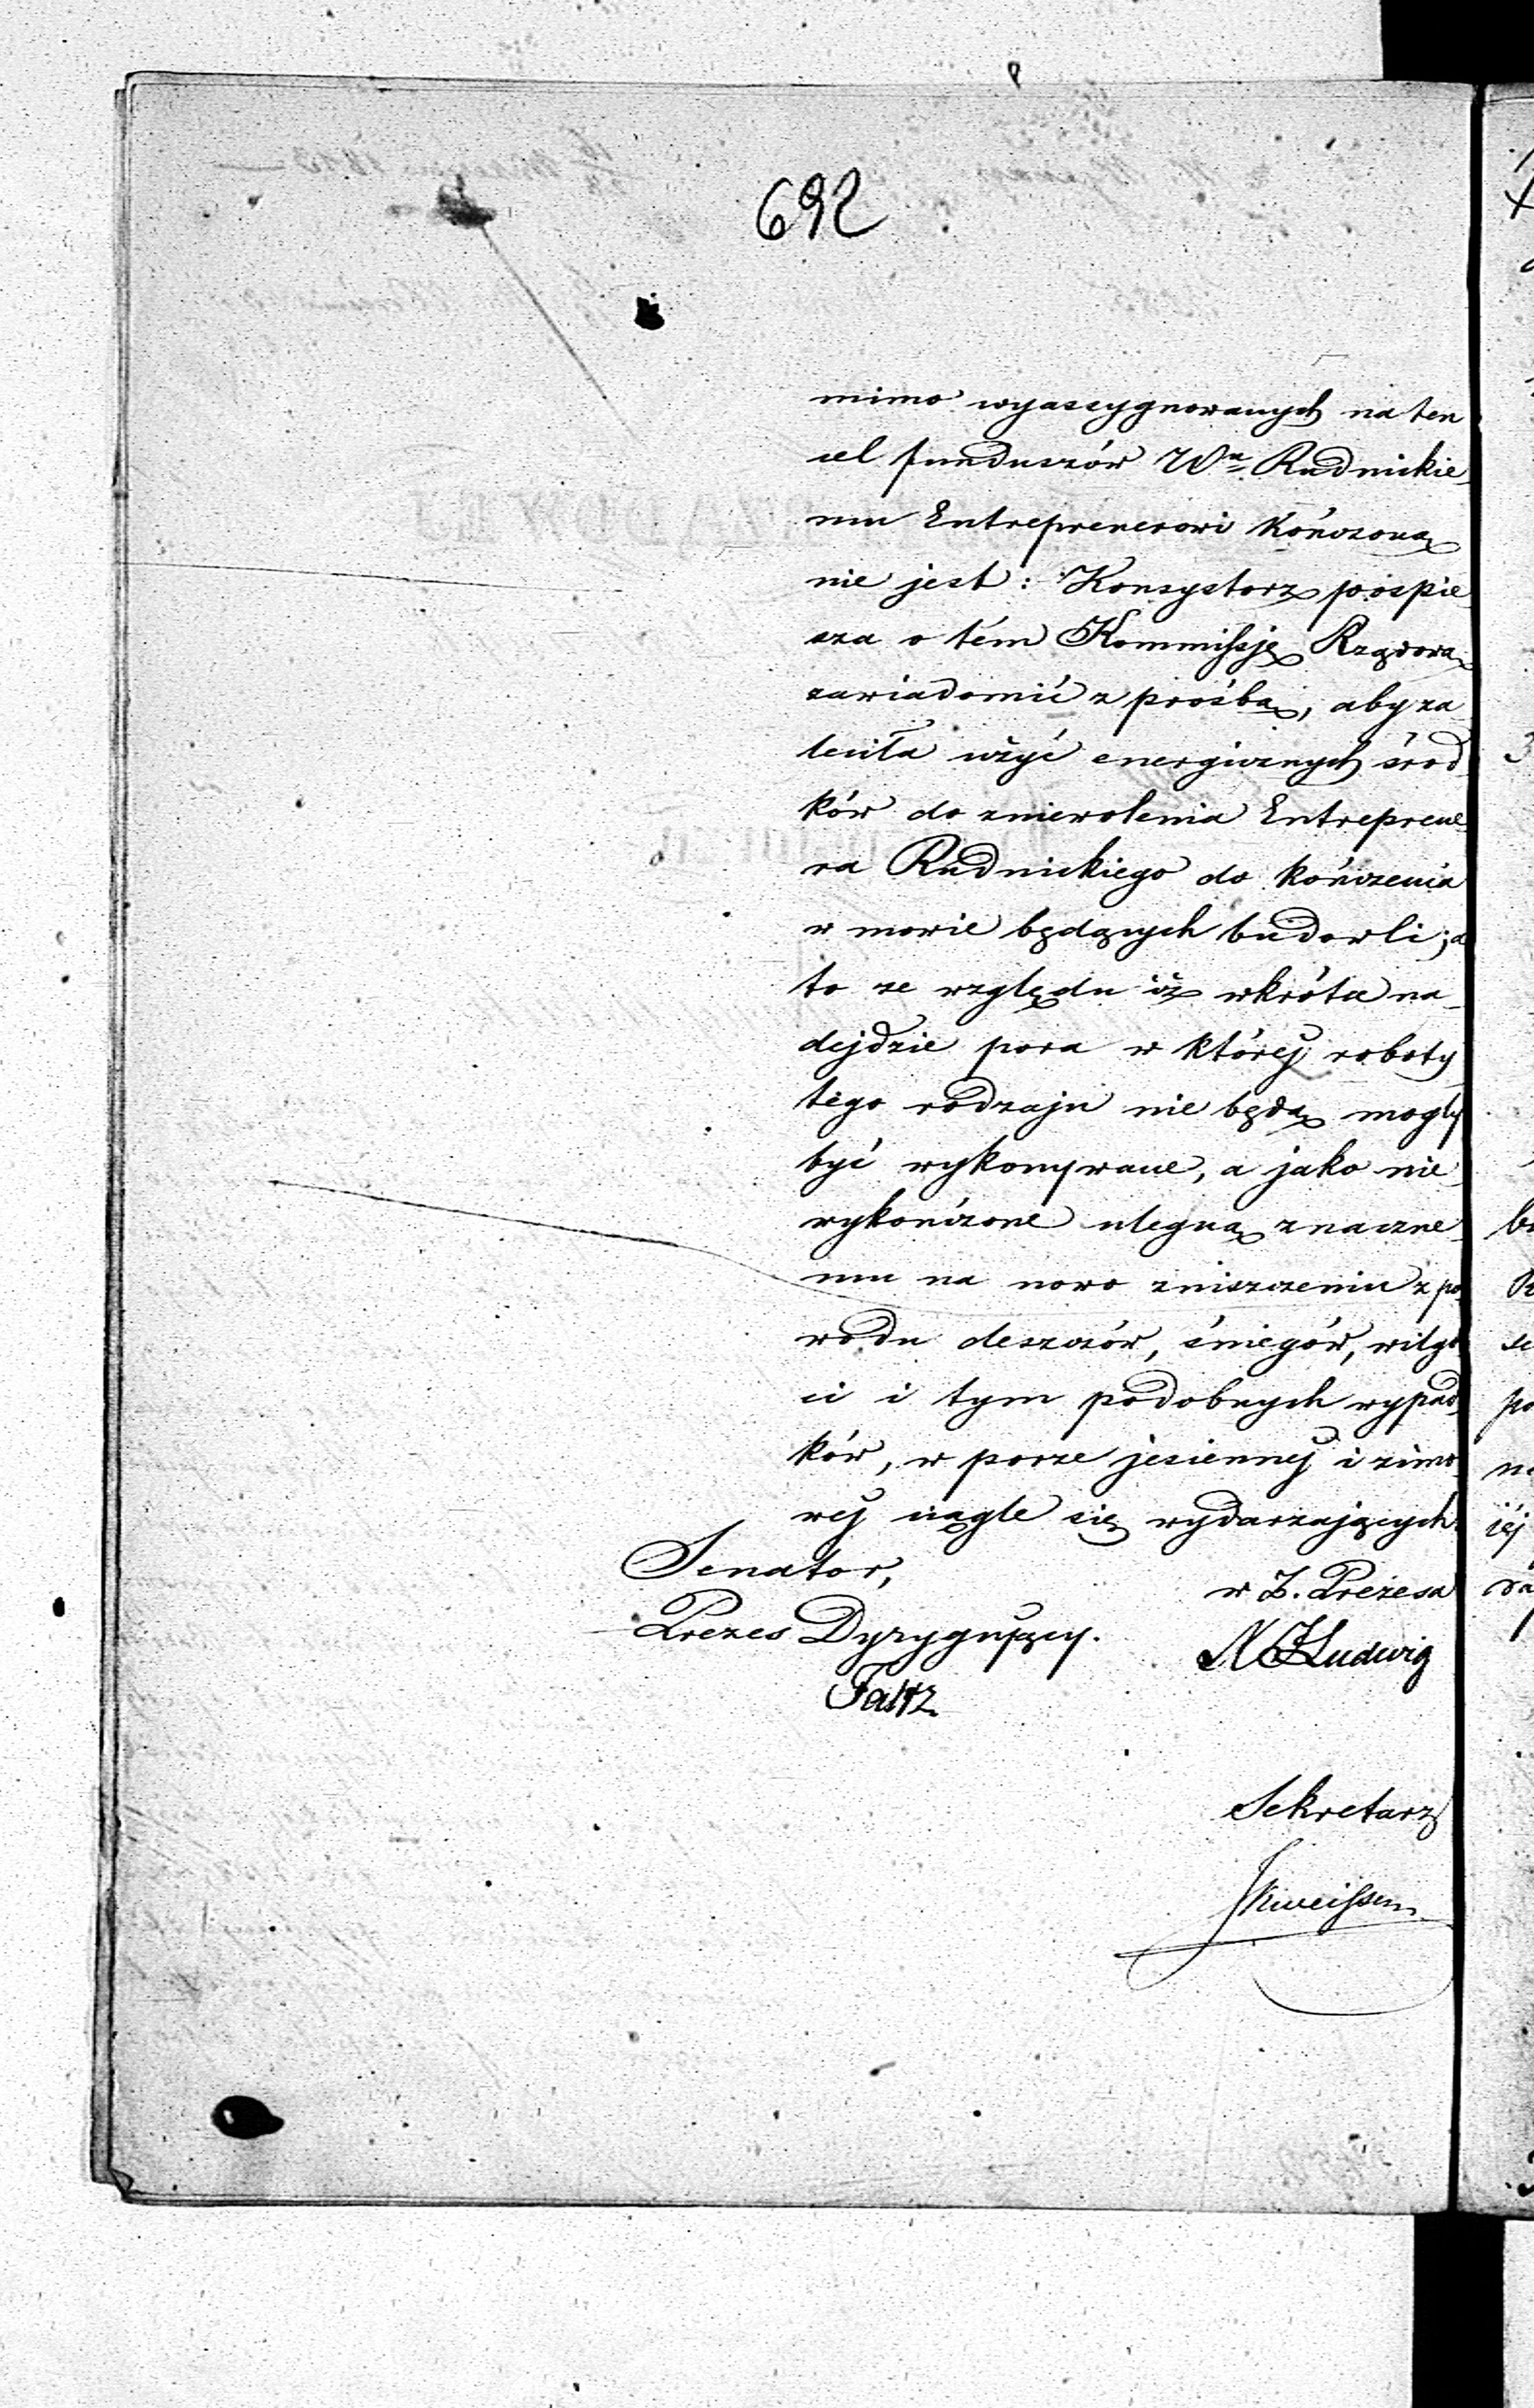 692
mimo wyassygnowanych na ten
cel funduszów Wu Rudnickie
mu Entreprenerowi kończoną
nie jest: Konsystorz pospie
sza o tém Kommissję Rządową
zawiadomić z prośbą, aby za
leciła użyć energicznych środ
ków do zniewolenia Entreprene
ra Rudnickiego do kończenia
w mowie będących budowli; a
to ze względu iż wkrótce na
dejdzie pora w której roboty
tego rodzaju nie będą mogły
być wykonywane, a jako nie
wykończone ulegną znaczne
mu na nowo zniszczeniu z po
wodu deszczów, śniegów, wilgo
ci i tym podobnych wypad
ków, w porze jesiennej i zimo
wej nagle się wydarzających.
Senator,
Prezes Dyrygujący.
w Z. Prezesa
Ludwig
Sekretarz